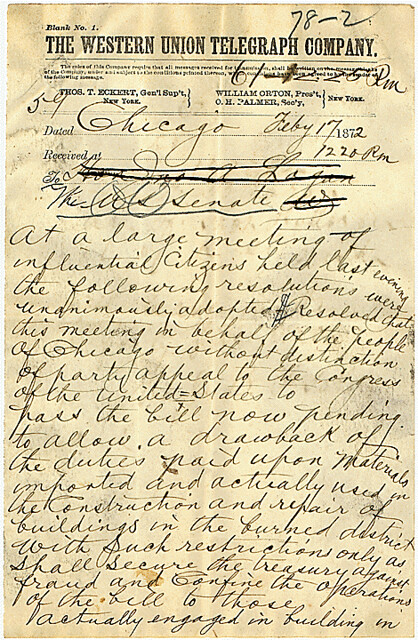 78-2
Blank No. 1.
THE WESTERN UNION TELEGRAPH COMPANY.
The rules of this Company require that all messages received for transmission, shall be written on the message blanks
of the Company, under and subject to the conditions printed thereon,
the following message.
Pm
59
THOS. T. ECKERT, Gen'l Sup't, WILLIAM ORTON, Pres't,
NEW YORK. O. H. PALMER, Sec'y, NEW YORK.
Dated Chicago Feby 17 1872
Received at 1220 Pm
To Hon Jno A Logan
The U S Senate
At a large meeting of
influential Citizens held last evening
the following resolutions were
unanimously adopted Resolved that
this meeting in behalf of the people
of Chicago without distinction
of party appeal to the Congress
of the United States to
pass the bill now pending
to allow a drawback of
the duties paid upon Materials
imported and actually used in
the Construction and repair of
buildings in the burned district
with such restrictions only as
shall secure the treasury against
fraud and Confine the operations
of the bill to those
actually engaged in building in